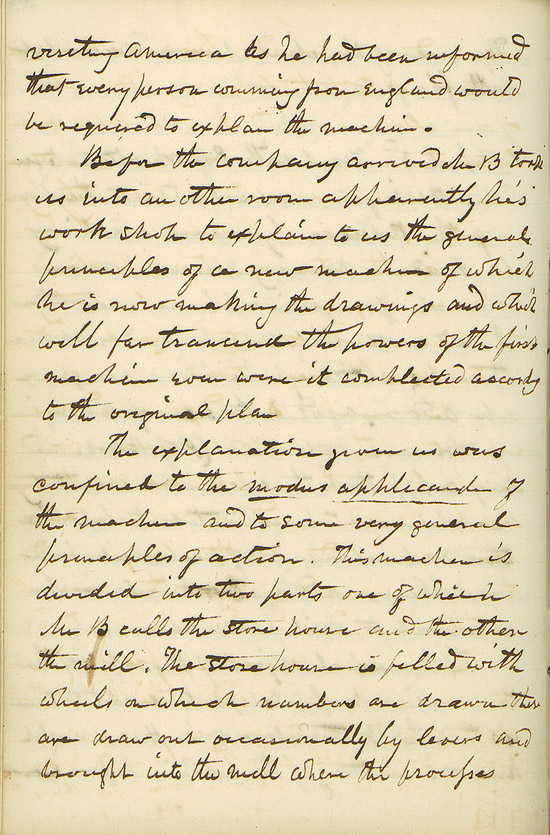 viseting America as he had been informed
that every person comming from England would
be required to explan the machine.
Before the company arrived Mr B took
us into an other room apparently he's
work shop to explain to us the general
principles of a new machine of which
he is now making the drawings and which
will far trancend the powers of the first
machine even were it complected according
to the original plan
The explanation given us was
confined to the modus applecande of
the machine and to some very general
principles of action. This machine is
divided into two parts one of which
Mr B calls the store house and the other
the mill. The store house is filled with
wheels on which numbers are drawn these
are draw out occasionally by levers and
brought into the mill where the processes